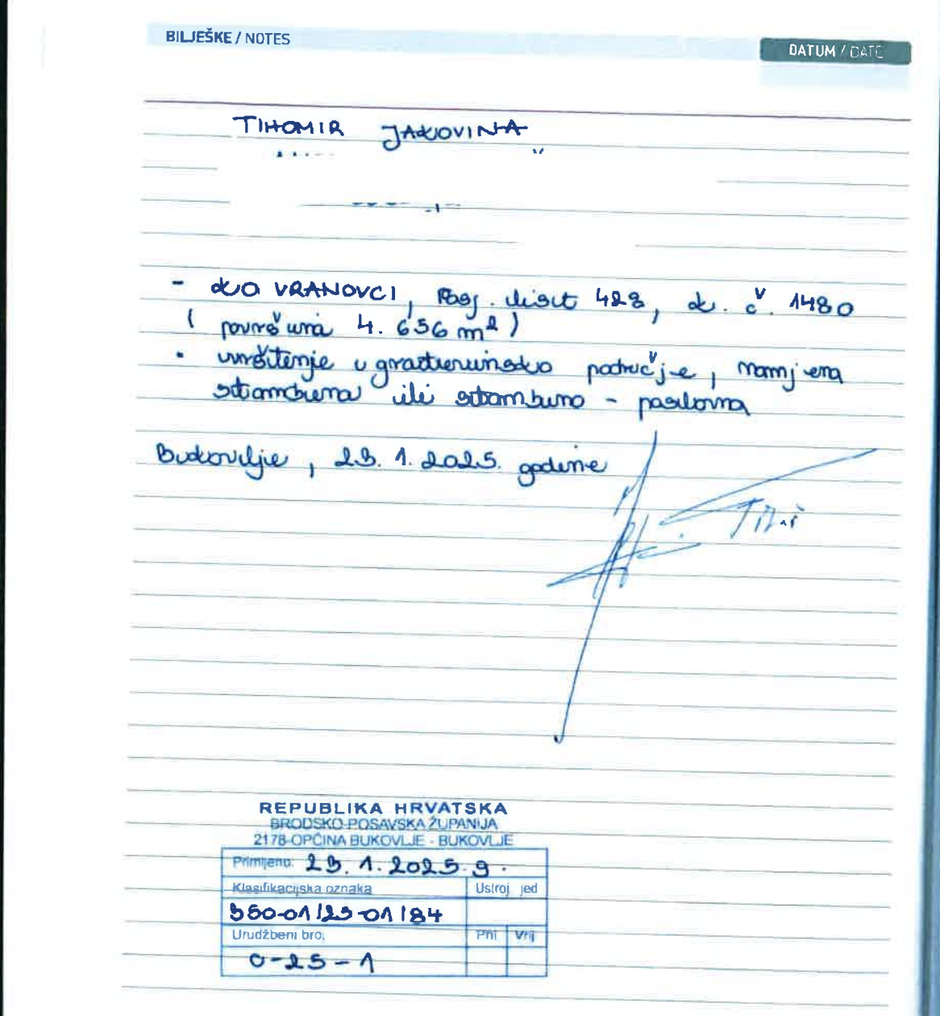 BILJEŠKE / NOTES
DATUM / DATE
TIHOMIR JAKOVINA
- k.o VRANOVCI, Posj. list 428, k. č. 1480
( površina 4. 656 m²)
• uvrštenje u građevinsko područje, namjena
stambena ili stambeno - poslovna
Bukovlje, 23. 1. 2025. godine
REPUBLIKA HRVATSKA
BRODSKO-POSAVSKA ŽUPANIJA
2178-OPĆINA BUKOVLJE - BUKOVLJE
Primljeno: 23. 1. 2025. g.
Klasifikacijska oznaka Ustroj jed
350-01/23-01/84
Urudžbeni broj Pril Vrij
0-25-1